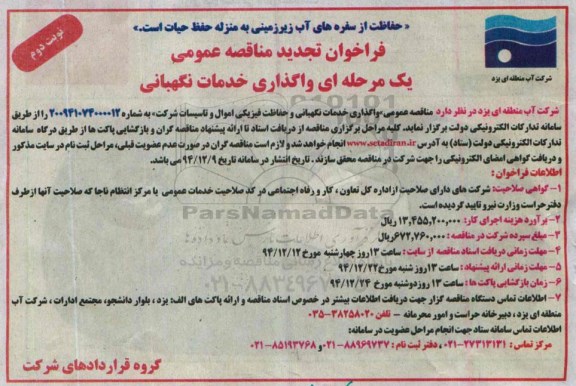 « حفاظت از سفره های آب زیرزمینی به منزله حفظ حیات است.»
نوبت دوم
فراخوان تجدید مناقصه عمومی
یک مرحله ای واگذاری خدمات نگهبانی
شرکت آب منطقه ای یزد
شرکت آب منطقه ای یزد در نظر دارد مناقصه عمومی «واگذاری خدمات نگهبانی و حفاظت فیزیکی اموال و تاسیسات شرکت» به شماره ۲۰۰۹۴۱۰۷۴۰۰۰۰۱۲ را از طریق
سامانه تدارکات الکترونیکی دولت برگزار نماید. کلیه مراحل برگزاری مناقصه از دریافت اسناد تا ارائه پیشنهاد مناقصه گران و بازگشایی پاکت ها از طریق درگاه سامانه
تدارکات الکترونیکی دولت (ستاد) به آدرس www.setadiran.ir انجام خواهد شد و لازم است مناقصه گران در صورت عدم عضویت قبلی، مراحل ثبت نام در سایت مذکور
و دریافت گواهی امضای الکترونیکی را جهت شرکت در مناقصه محقق سازند. تاریخ انتشار در سامانه تاریخ ۹۴/۱۲/۹ می باشد.
اطلاعات فراخوان :
۱- گواهی صلاحیت: شرکت های دارای صلاحیت از اداره کل تعاون، کار و رفاه اجتماعی در کد صلاحیت خدمات عمومی یا مرکز انتظام ناجا که صلاحیت آنها از طرف
دفتر حراست وزارت نیرو تایید گردیده است.
۲- برآورد هزینه اجرای کار: ۱۳,۴۵۵,۲۰۰,۰۰۰ ریال
۳- مبلغ سپرده شرکت در مناقصه : ۶۷۲,۷۶۰,۰۰۰ ریال
۴- مهلت زمانی دریافت اسناد مناقصه از سایت: ساعت ۱۳ روز چهارشنبه مورخ ۹۴/۱۲/۱۲
۵- مهلت زمانی ارائه پیشنهاد : ساعت ۱۳ روز شنبه مورخ ۹۴/۱۲/۲۲
۶- زمان بازگشایی پاکت ها : ساعت ۱۳ روز دوشنبه مورخ ۹۴/۱۲/۲۴
۷- اطلاعات تماس دستگاه مناقصه گزار جهت دریافت اطلاعات بیشتر در خصوص اسناد مناقصه و ارائه پاکت های الف: یزد ، بلوار دانشجو، مجتمع ادارات ، شرکت آب
منطقه ای یزد ، دبیرخانه حراست و امور محرمانه - تلفن ۳۸۲۵۸۰۲۰-۰۳۵
اطلاعات تماس سامانه ستاد جهت انجام مراحل عضویت در سامانه:
مرکز تماس : ۲۷۳۱۳۱۳۱-۰۲۱ ، دفتر ثبت نام : ۸۸۹۶۹۷۳۷-۰۲۱ و ۸۵۱۹۳۷۶۸-۰۲۱
گروه قراردادهای شرکت
ParsNamadData